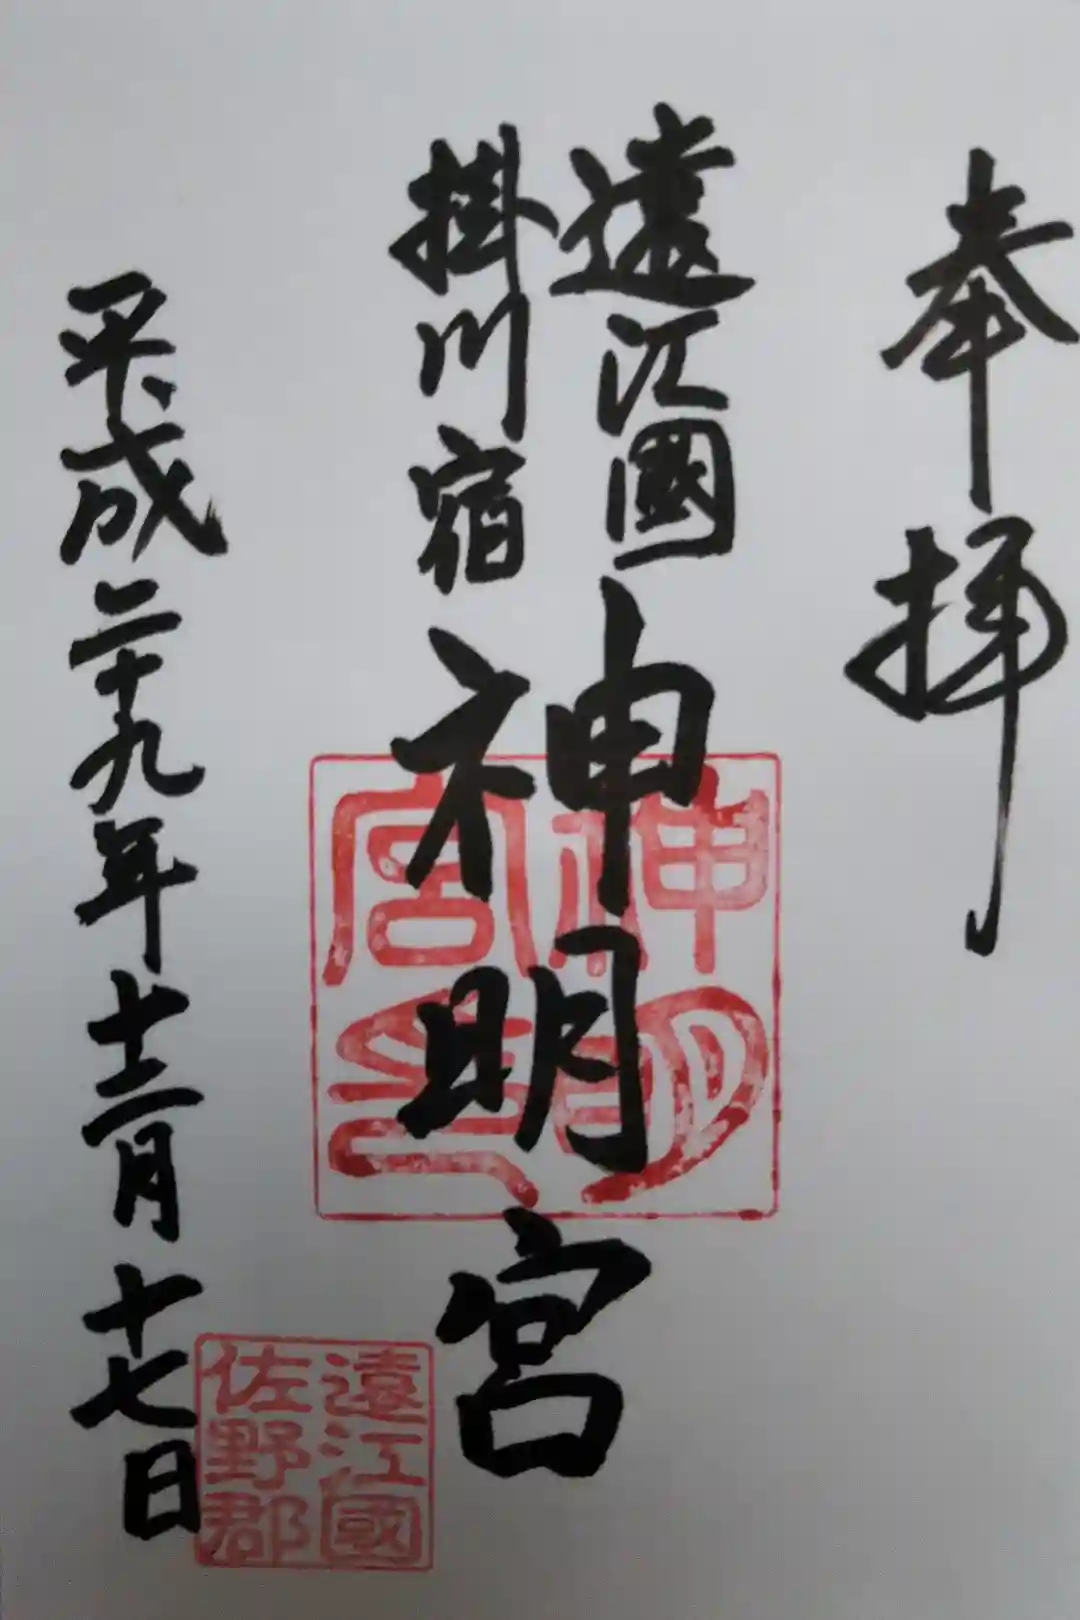 奉拝
遠江國
掛川宿
神明宮
平成二十九年十二月十七日
神明
宮印
遠江國
佐野郡